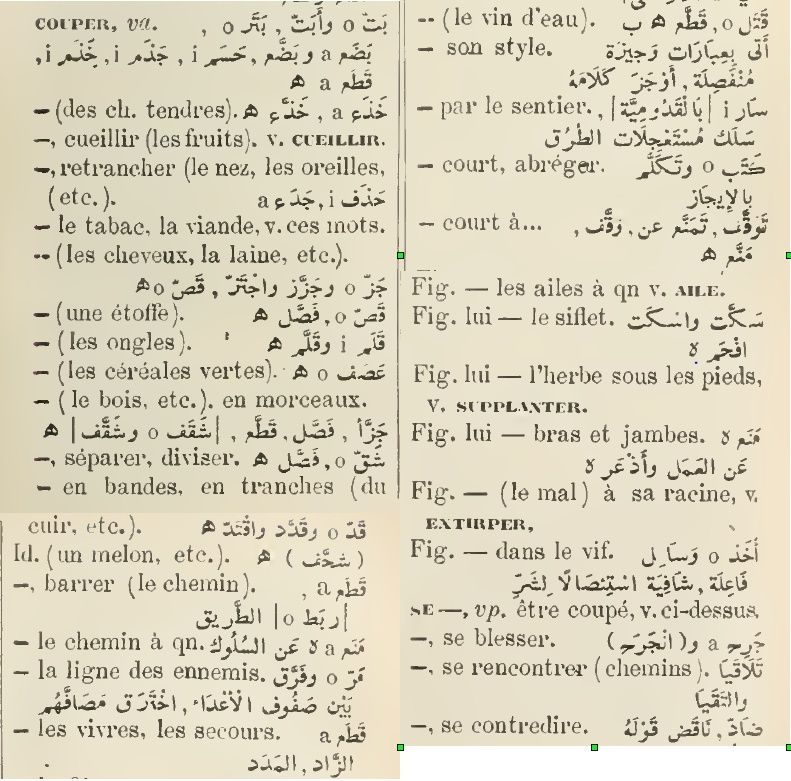 COUPER, va. بَتّ o وأَبَتّ , بَتَّر o ,
بَضَع a وبَضَّع , حَسَم i , جَذَم i , خَذَم i,
قَطَع a ه
– (des ch. tendres). خَذَع a , خَذَّع ه
–, cueillir (les fruits). v. CUEILLIR.
–, retrancher (le nez, les oreilles,
(etc.). حَذَف i , جَدَع a
– le tabac, la viande, v. ces mots.
-- (les cheveux, la laine, etc.).
جَزّ o وجَزَّز واجْتَزّ , قَصّ o ه
– (une étoffe). قَصّ o , فَصَّل ه
– (les ongles). قَلَم i وقَلَّم ه
– (les céréales vertes). عَصَف o ه
– ( le bois, etc.). en morceaux.
جَزَّأ , فَصَّل , قَطَّع , |شَقَف o وشَقَّف| ه
–, séparer, diviser. شَقّ o , فَصَّل ه
– en bandes, en tranches (du
cuir, etc.). قَدّ o وقَدَّد واقْتَدّ ه
Id. (un melon, etc.). ( شَحَّف ) ه
–, barrer (le chemin). قَطَع a ,
|رَبَط o| الطَّرِيق
– le chemin à qn. مَنَع a ه عَن السُّلُوك
– la ligne des ennemis. مَرّ o وفَرَّق
بَيْن صُفُوف الأَعْدَاء , اخْتَرَق مَصَافَّهُم
– les vivres, les secours. قَطَع a
الزَّاد , المَدَد
-- (le vin d'eau). قَتَل o , قَطَّع ه ب
– son style. أَتَى بِعِبَارَات وَجِيزَة
مُنْفَصِلَة , أَوْجَزَ كَلَامَهُ
– par le sentier. سَار i |بِالقَدُومِيَّة| ,
سَلَك مُسْتَعْجِلَات الطُّرُق
– court, abréger. كَتَب o وتَكَلَّم
بِالإِيجَاز
– court à... تَوَقَّف , تَمَنَّع عن , وَقَّف ,
مَنَّع ه
Fig. — les ailes à qn v. AILE.
Fig. lui — le siflet. سَكَّت واسْكَت
افْحَم ه
Fig. lui — l'herbe sous les pieds,
V. SUPPLANTER.
Fig. lui — bras et jambes. مَنَع ه
عَن العَمَل وأَذْعَر ه
Fig. — (le mal) à sa racine, v.
EXTIRPER,
Fig. — dans le vif. أَخَذ o وَسَائِل
فَاعِلَة , شَافِيَة اسْتِئْصَالًا لِشَرّ
SE —, vp. être coupé, v. ci-dessus.
–, se blesser. جَرِح a و( انْجَرَح )
–, se rencontrer (chemins). تَلَاقَيَا
والْتَقَيَا
–, se contredire. ضَادّ , نَاقَض قَوْلَهُ